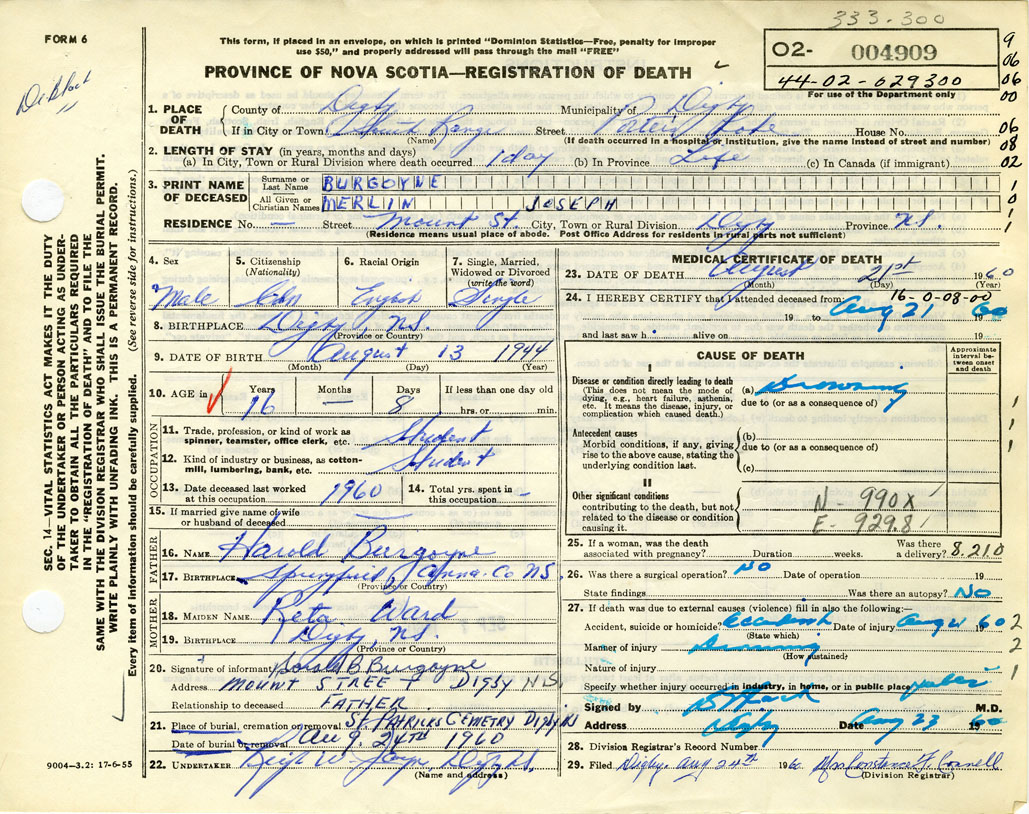 333-300
FORM 6
This form, if placed in an envelope, on which is printed "Dominion Statistics—Free, penalty for improper
use $50," and properly addressed will pass through the mail "FREE"
PROVINCE OF NOVA SCOTIA—REGISTRATION OF DEATH
02- 004909
44-02-629300
For use of the Department only
9
06
06
00
06
08
02
1
0
1
1
1
1
1
2
2
1
SEC. 14—VITAL STATISTICS ACT MAKES IT THE DUTY
OF THE UNDERTAKER OR PERSON ACTING AS UNDER-
TAKER TO OBTAIN ALL THE PARTICULARS REQUIRED
IN THE "REGISTRATION OF DEATH" AND TO FILE THE
SAME WITH THE DIVISION REGISTRAR WHO SHALL ISSUE THE BURIAL PERMIT.
WRITE PLAINLY WITH UNFADING INK. THIS IS A PERMANENT RECORD.
Every item of information should be carefully supplied. (See reverse side for instructions.)
1. PLACE OF DEATH County of Digby Municipality of Digby
If in City or Town South Range Street House No.
(Name) (If death occurred in a hospital or institution, give the name instead of street and number)
2. LENGTH OF STAY (in years, months and days)
(a) In City, Town or Rural Division where death occurred 1 day (b) In Province Life (c) In Canada (if immigrant)
3. PRINT NAME OF DECEASED Surname or Last Name BURGOYNE
All Given or Christian Names MERLIN JOSEPH
RESIDENCE No. — Street Mount St. City, Town or Rural Division Digby Province N.S.
(Residence means usual place of abode. Post Office Address for residents in rural parts not sufficient)
4. Sex Male
5. Citizenship (Nationality) Cdn
6. Racial Origin English
7. Single, Married, Widowed or Divorced (write the word) Single
8. BIRTHPLACE Digby, N.S.
(Province or Country)
9. DATE OF BIRTH August 13 1944
(Month) (Day) (Year)
10. AGE in Years 16 Months — Days 8 If less than one day old hrs. or min.
OCCUPATION
11. Trade, profession, or kind of work as spinner, teamster, office clerk, etc. Student
12. Kind of industry or business, as cotton-mill, lumbering, bank, etc. Student
13. Date deceased last worked at this occupation 1960 14. Total yrs. spent in this occupation -
15. If married give name of wife or husband of deceased
FATHER
16. NAME Harold Burgoyne
17. BIRTHPLACE Springfield, Anna. Co N.S.
(Province or Country)
MOTHER
18. MAIDEN NAME Reta Ward
19. BIRTHPLACE Digby, N.S.
(Province or Country)
20. Signature of informant Harold B Burgoyne
Address MOUNT STREET DIGBY N.S.
Relationship to deceased FATHER
21. Place of burial, cremation or removal ST. PATRICKS CEMETRY DIGBY NS
Date of burial or removal Aug. 24TH 1960
22. UNDERTAKER
(Name and address)
9004—3.2: 17-6-55
MEDICAL CERTIFICATE OF DEATH
23. DATE OF DEATH August 21st 1960
(Month) (Day) (Year)
16-0-08-00
24. I HEREBY CERTIFY that I attended deceased from
19 to Aug 21 1960
and last saw h alive on 19
CAUSE OF DEATH
Approximate interval between onset and death
I
Disease or condition directly leading to death (a) Drowning
(This does not mean the mode of dying, e.g., heart failure, asthenia, etc. It means the disease, injury, or complication which caused death.) due to (or as a consequence of)
Antecedent causes (b)
Morbid conditions, if any, giving rise to the above cause, stating the underlying condition last. due to (or as a consequence of)
(c)
II
Other significant conditions contributing to the death, but not related to the disease or condition causing it.
N - 990X
E - 929.8
25. If a woman, was the death associated with pregnancy? Duration weeks. Was there a delivery? 8.210
26. Was there a surgical operation? NO Date of operation 19
State findings Was there an autopsy? No
27. If death was due to external causes (violence) fill in also the following:—
Accident, suicide or homicide? Accident Date of injury Aug 21 1960
(State which)
Manner of injury
(How sustained)
Nature of injury
Specify whether injury occurred in industry, in home, or in public place
Signed by M.D.
Address Digby Date Aug 23 1960
28. Division Registrar's Record Number
29. Filed Digby. Aug 24th 1960 Mrs Constance F. Connell
(Division Registrar)